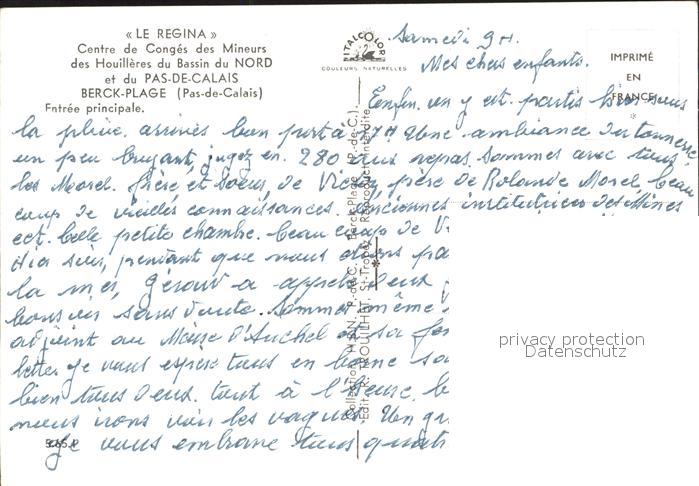 « LE REGINA »
Centre de Congés des Mineurs
des Houillères du Bassin du NORD
et du PAS-DE-CALAIS
BERCK-PLAGE (Pas-de-Calais)
Entrée principale.
ITALCOLOR
COULEURS NATURELLES
IMPRIMÉ
EN
FRANCE
Samedi 9H.
Mes chers enfants.
Enfin on y est. partis hier sous
la pluie. arrivés bon port à 17H Une ambiance du tonnerre
un peu bruyant, jugez en. 280 aux repas. Sommes avec tous
les Morel. frère et soeur, de père de Rolande Morel, beau
coup de vieilles connaissances. anciennes institutrices des Mines
ect. belle petite chambre. beau coup de
Hier soir, pendant que nous étions
la mer, Gérard a appelé deux
bonsoir sans doute. Sommes même
adjoint au Maire d'Auchel et sa
Je vous espère tous en bonne
bien tous deux. tout à l'heure,
nous irons voir les vagues. Un
Je vous embrasse tous
Reproduct. Interdite
privacy protection
Datenschutz